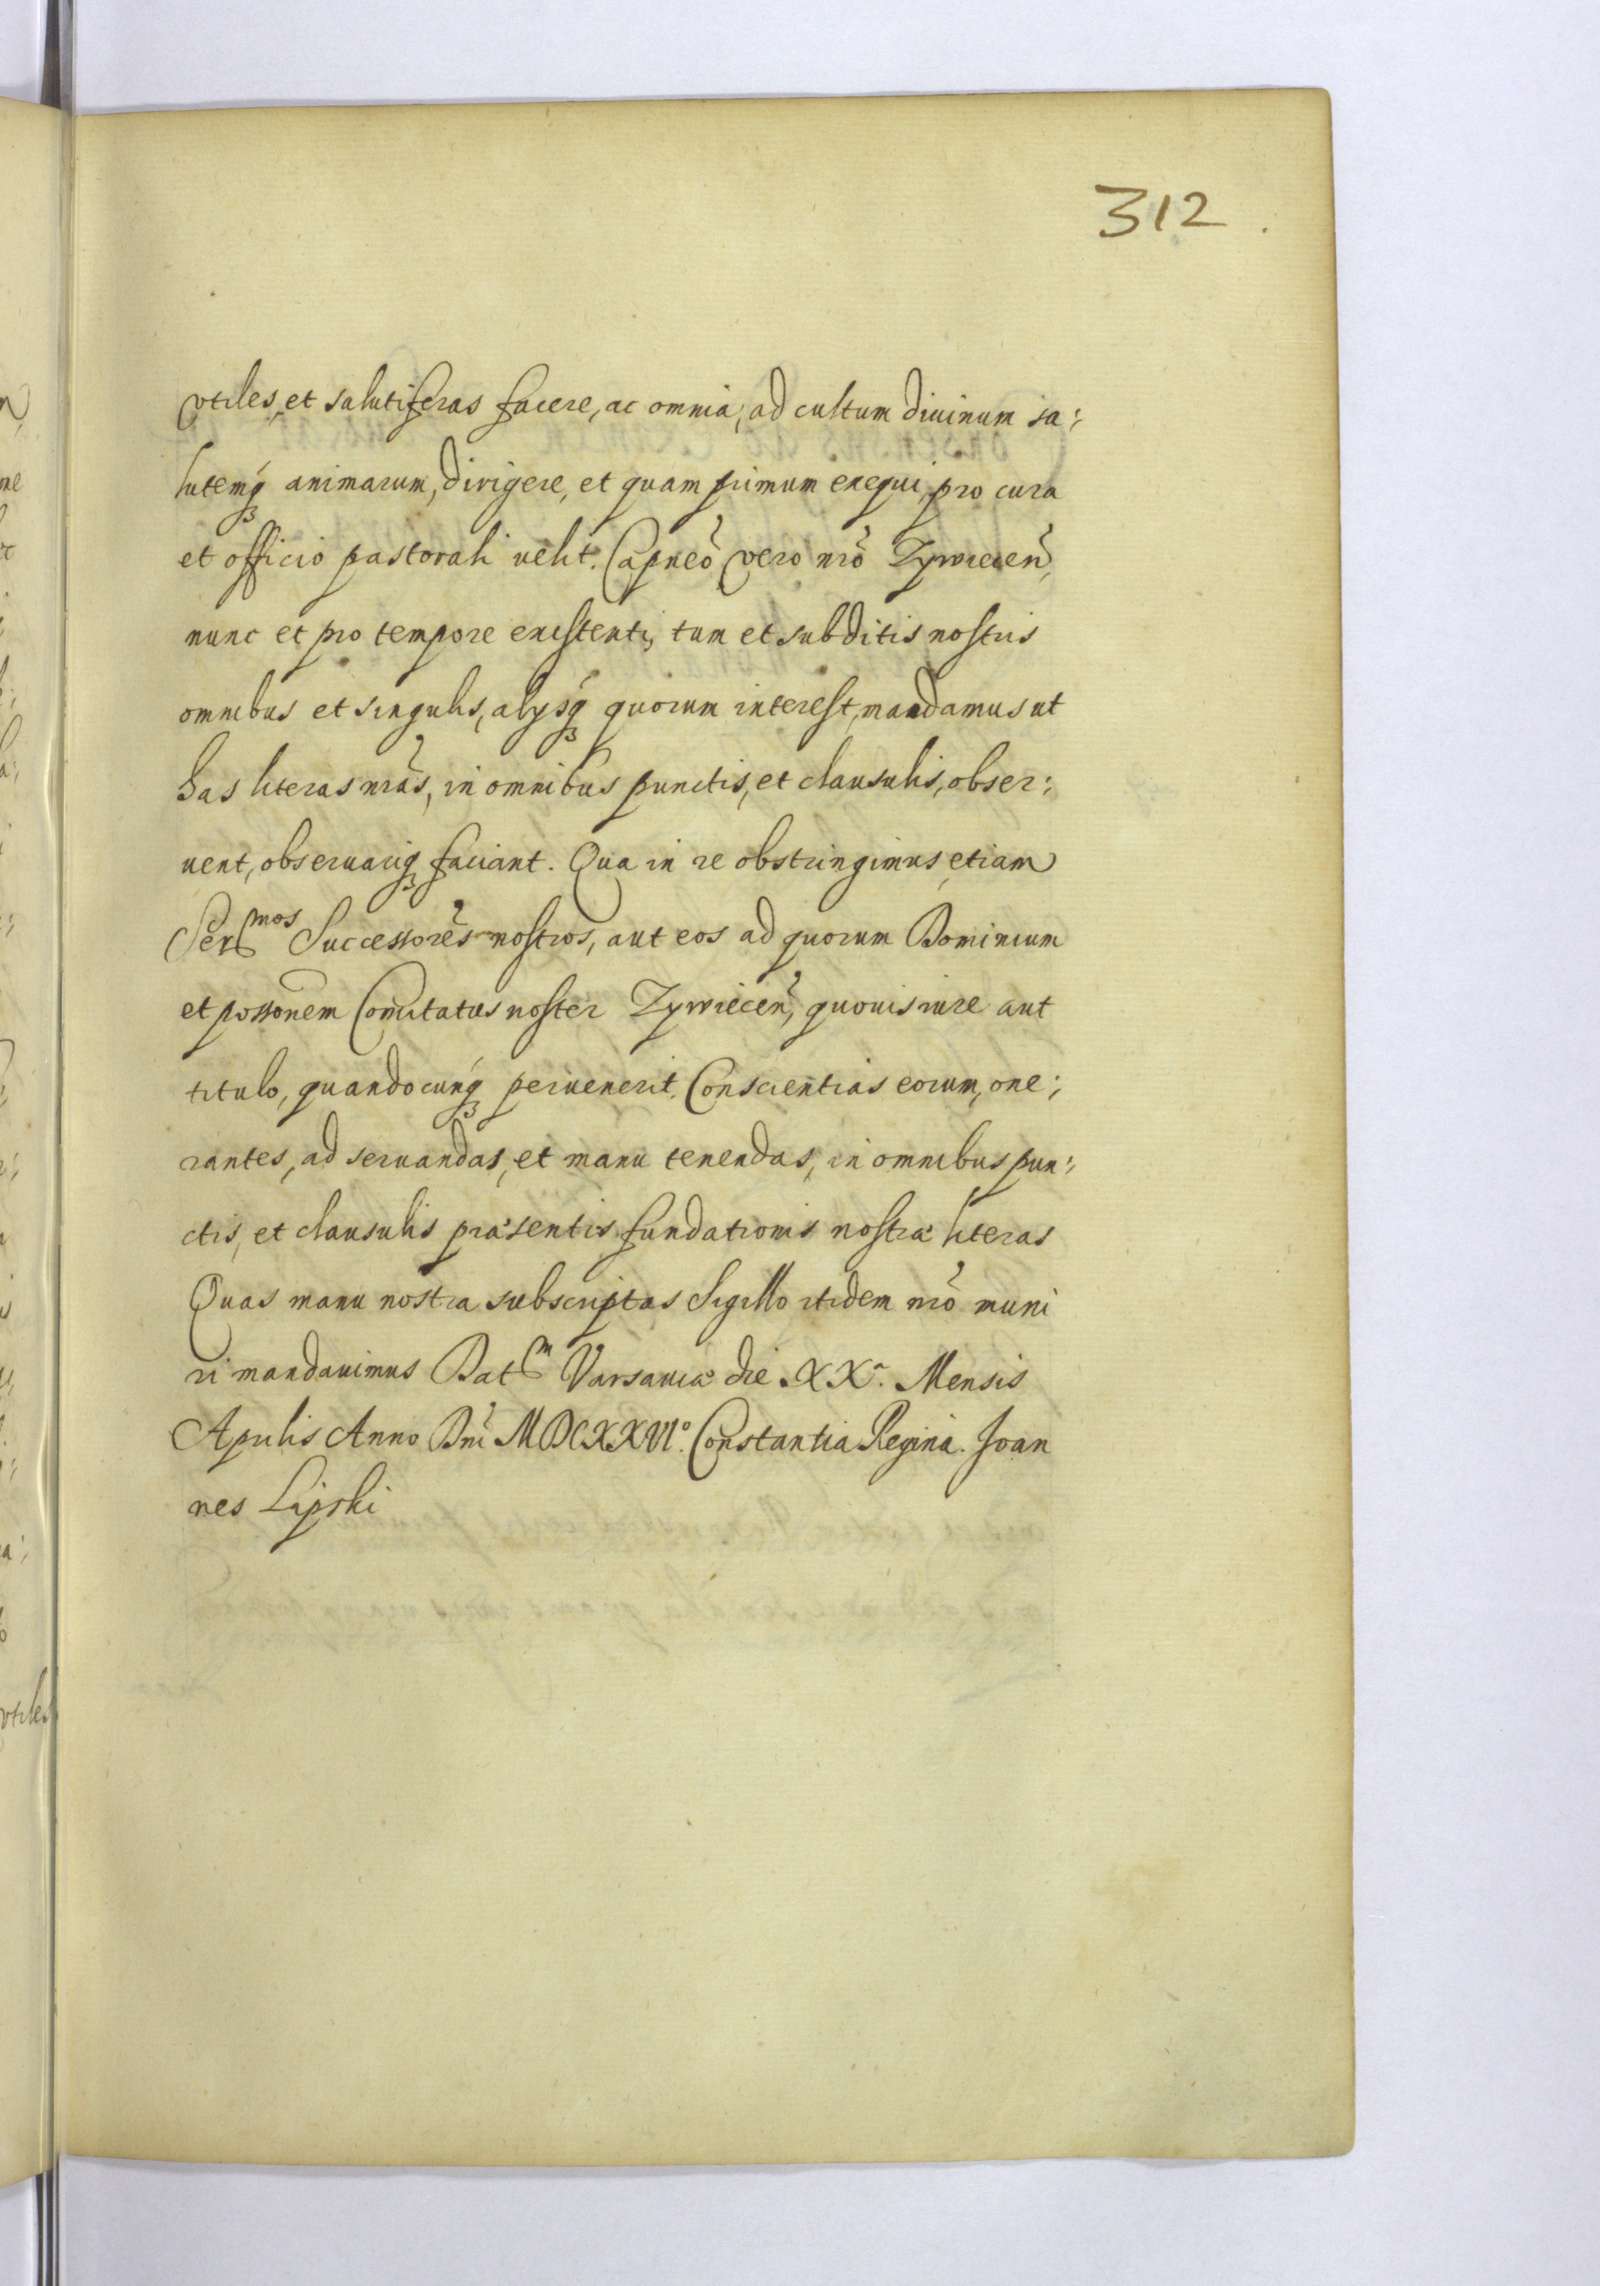 312
vtiles, et salutiferas facere, ac omnia, ad cultum diuinum sa:
lutemq; animarum, dirigere, et quam primum exequi, pro cura
et officio pastorali uelit. Capneo vero nro Zywiecen,
nunc et pro tempore existenti, tum et subditis nostris
omnibus et singulis, alysq; quorum interest, mandamus ut
has literas nras, in omnibus punctis, et clausulis, obser:
uent, obseruariq; faciant. Qua in re obstringimus, etiam
Sermos Successores nostros, aut eos ad quorum Dominium
et possonem Comitatus noster Zywiecen, quouis iure aut
titulo, quandocunq; peruenerit, Conscientias eorum, one:
rantes, ad seruandas, et manu tenendas, in omnibus pun:
ctis, et clausulis præsentis fundationis nostræ literas
Quas manu nostra subscriptas Sigillo itidem nro muni
ri mandauimus Datm Varsauiæ die XXa. Mensis
Aprilis Anno Dni MDCXXVIo. Constantia Regina. Joan
nes Lipski
vtiles